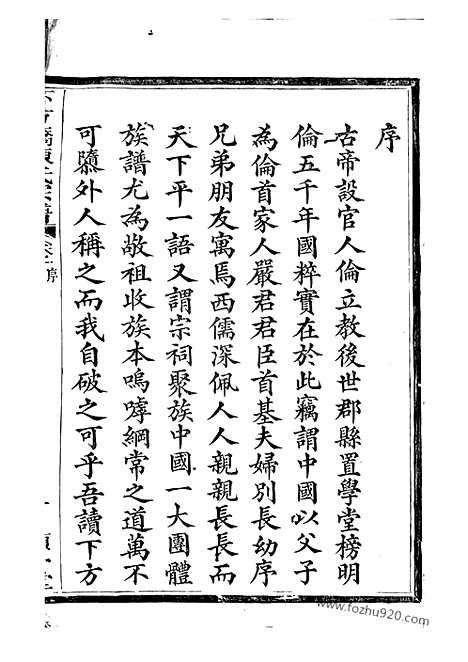 序
古帝設官人倫立教後世郡縣置學堂榜明
倫五千年國粹實在於此竊謂中國以父子
為倫首家人嚴君君臣首基夫婦別長幼序
兄弟朋友寓焉西儒深佩人人親親長長而
天下平一語又謂宗祠聚族中國一大團體
族譜尤為敬祖收族本嗚嘑綱常之道萬不
可隳外人稱之而我自破之可乎吾讀下方
卷一序
www.fozhu920.com